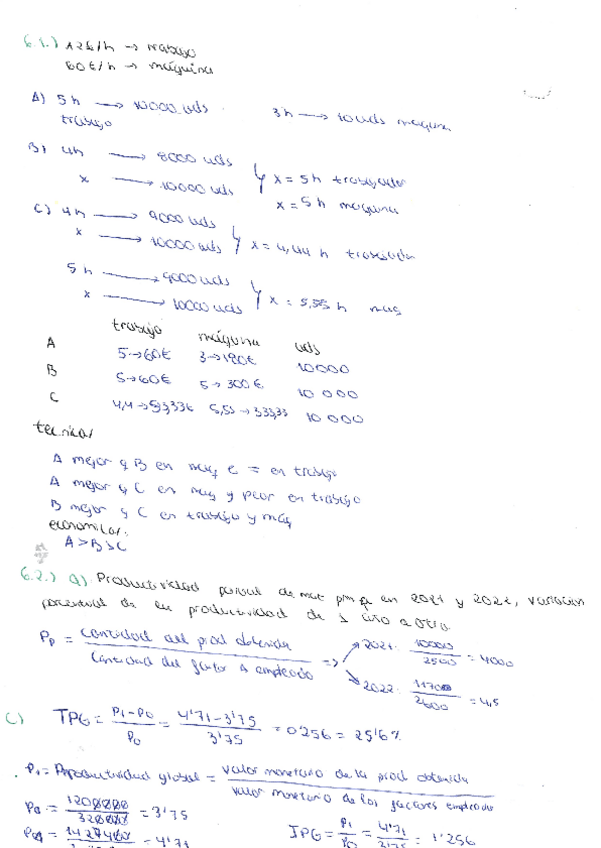 6.1.) 12€/h → trabajo
60€/h → máquina
A) 5h → 10000 uds 3h → 10 uds maquina
trabajo
B) 4h → 8000 uds
x → 10000 uds } x = 5h trabajador
x = 5h maquina
C) 4h → 9000 uds
x → 10000 uds } x = 4,44 h trabajada
5h → 9000 uds
x → 10000 uds } x = 5,55 h maq
trabajo máquina uds
A 5→60€ 3→180€ 10000
B 5→60€ 5→300€ 10 000
C 4,4→53,33€ 5,55→333,33 10 000
tecnica
A mejor q B en maq e = en trabajo
A mejor q C en maq y peor en trabajo
B mejor q C en trabajo y maq
economica:
A > B > C
6.2.) a) Productividad parcial de mat prim en 2021 y 2022, variación
porcentual de la productividad de 1 año a otro.
Pp = cantidad del prod obtenida / cantidad del factor empleado => 2021: 10000 / 2500 = 4000
2022: 11700 / 2600 = 4,5
C) TPG = P1-P0 / P0 = 4'71-3'75 / 3'75 = 0'256 = 25'6%
P = Productividad global = valor monetario de la prod obtenida / valor monetario de los factores empleado
P0 = 1200000 / 320000 = 3'75
= 4'71
IPG = P1 / P0 = 4'71 / 3'75 = 1'256